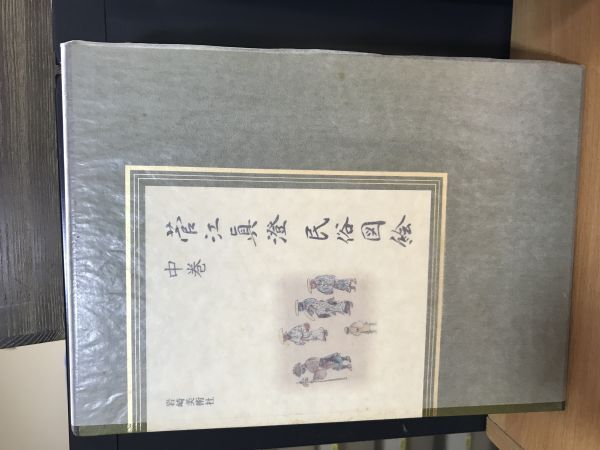 菅江眞澄 民俗図絵
中巻
岩崎美術社